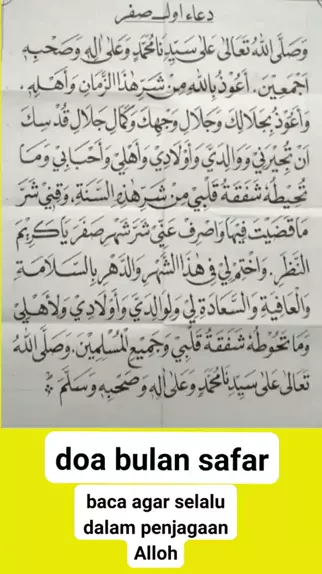 دعاء اول صفر
وَصَلَّى اللهُ تَعَالَى عَلَى سَيِّدِنَا مُحَمَّدٍ وَعَلَى اٰلِهِ وَصَحْبِهِ
اَجْمَعِيْنَ. اَعُوْذُ بِاللهِ مِنْ شَرِّ هٰذَا الزَّمَانِ وَأَهْلِهِ،
وَأَعُوْذُ بِجَلَالِكَ وَجَلَالِ وَجْهِكَ وَكَمَالِ جَلَالِ قُدْسِكَ
اَنْ تُجِيْرَنِي وَوَالِدَيَّ وَأَوْلَادِي وَأَهْلِي وَأَحْبَابِي وَمَا
تُحِيْطُهُ شَفَقَةُ قَلْبِي مِنْ شَرِّ هٰذِهِ السَّنَةِ، وَقِنِي شَرَّ
مَا قَضَيْتَ فِيْهَا وَاصْرِفْ عَنِّي شَرَّ شَهْرِ صَفَرَ يَا كَرِيْمَ
النَّظَرِ. وَاخْتِمْ لِي فِي هٰذَا الشَّهْرِ وَالدَّهْرِ بِالسَّلَامَةِ
وَالْعَافِيَةِ وَالسَّعَادَةِ لِي وَلِوَالِدَيَّ وَأَوْلَادِي وَلِأَهْلِي
وَمَا تَحُوْطُهُ شَفَقَةُ قَلْبِي وَجَمِيْعِ الْمُسْلِمِيْنَ. وَصَلَّى اللهُ
تَعَالَى عَلَى سَيِّدِنَا مُحَمَّدٍ وَعَلَى اٰلِهِ وَصَحْبِهِ وَسَلَّمَ
doa bulan safar
baca agar selalu
dalam penjagaan
Alloh